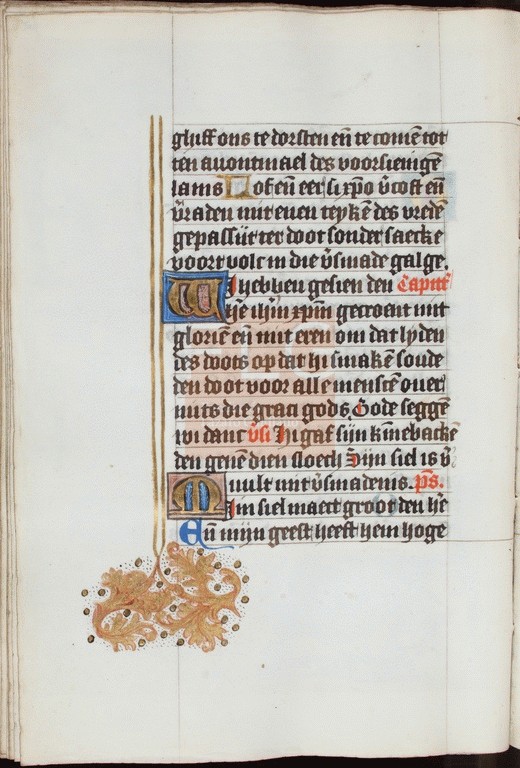 ghift ons te dorsten en̄ te comē tot
ten auontmael des voorsienigē
lams Lof en̄ eer si xp̄o v̄cost en̄
v̄raden mit euen teykē des vredē
gepassijt ter doot sonder saecke
voort volc in die v̄smade galge.
Wi hebben gesien den Capitt̄
h̄e ih̄m xp̄m gecroont mit
gloriē en̄ mit eren om dat lyden
des doots op dat hi smakē soude
den doot voor alle menscē ouer
mits die graci gods Gode seggē
wi danc v̄si Hi gaf sijn kinnebackē
den genē dien sloech Sijn siel is v̄
vult mit v̄smadenis. p̄s.
Min siel maect groot den h̄e
En̄ mijn geest heeft hem hoge